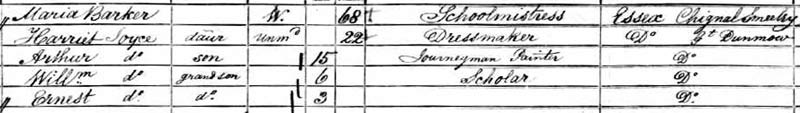 " Maria Barker W. 68 Schoolmistress Essex Chignal Smeeley
Harriet Joyce daur Unmd 22 Dressmaker Do Gt Dunmow
Arthur do son 15 Journeyman Painter Do
Willm do grandson 6 Scholar Do
" Ernest do do 3 Do